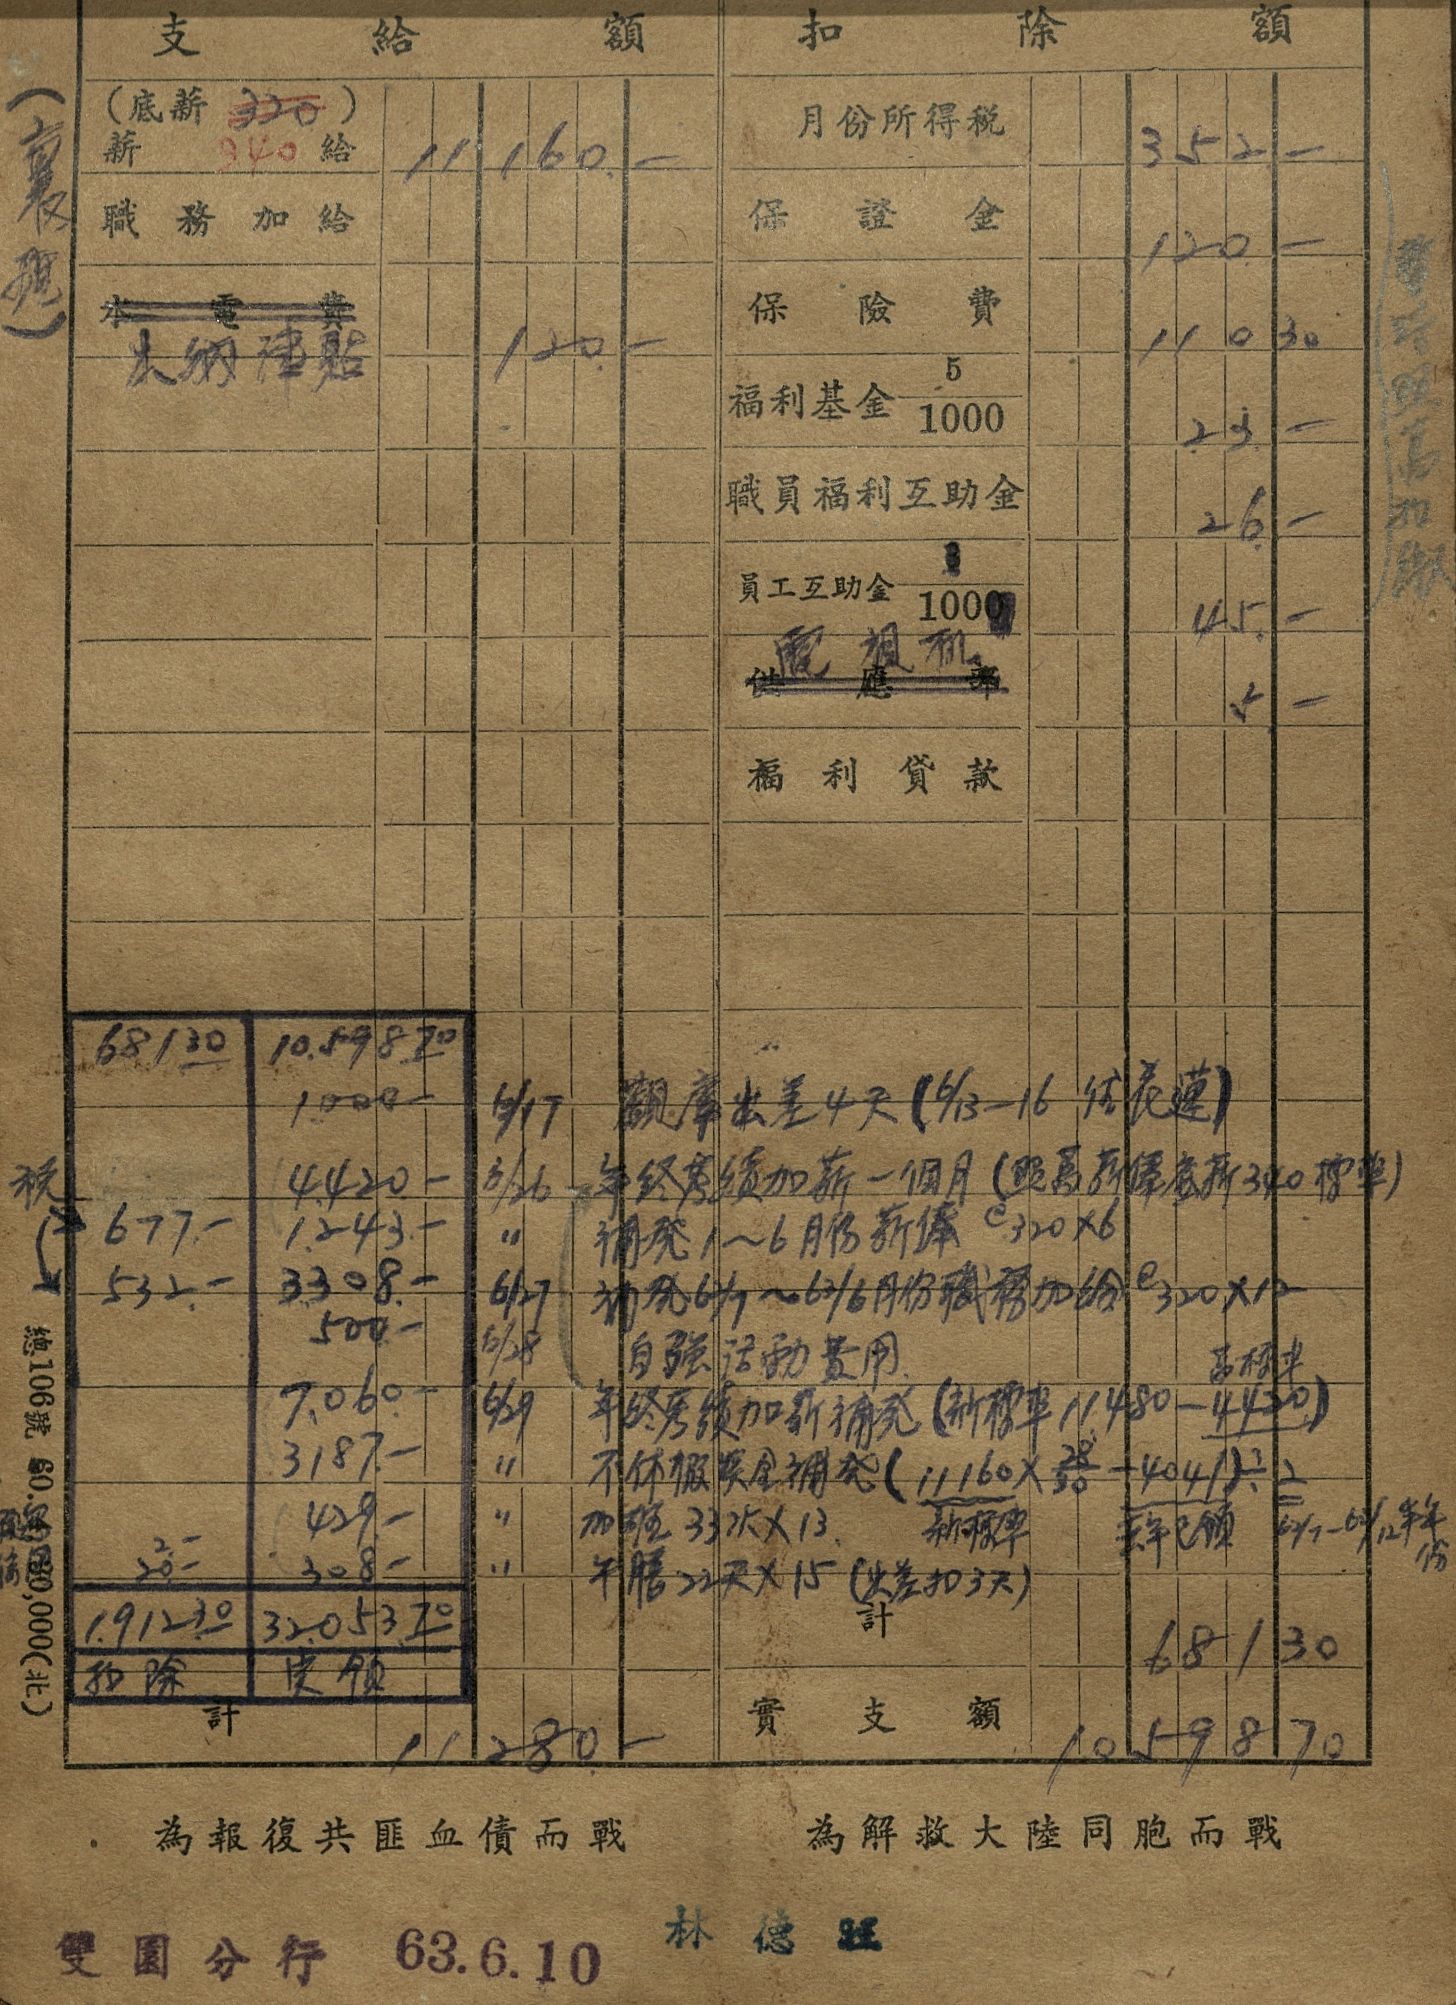 支給額 扣除額
(底薪 320)
薪 340 給 11 160.-
月份所得稅 352-
職務加給
保證金 120-
水電費
出納津貼 120.-
保險費 110 30
福利基金 5/1000 23.-
職員福利互助金 26.-
員工互助金 /1000 45.-
電視机
供應部 5-
福利貸款
681 30 10.598 70
1000- 6/17 觀摩出差4天(6/13-16 花蓮)
稅
4.420- 6/26 年終考績加薪一個月(照舊薪俸底薪340標準)
677.- 1.243.- " 補発1~6月份薪俸 @320×6
532.- 3308.- 6/27 補発62/7~63/6月份職務加給 @320×12
500.- 6/28 自強活動費用
舊標準
7.060- 6/29 年終考績加薪補発(新標準11480-4420)
3187.- " 不休假獎金補発(11160×28/30-4041)÷2
429- " 加班33次×13
新標準 去年已領 62/7-62/12半年份
2-
20- 308- " 午膳22天×15(出差扣3天)
1.912 30 32.053 70
扣除 实領
計 681 30
計 11 280.-
實支額 10 598 70
為報復共匪血債而戰 為解救大陸同胞而戰
雙園分行 63.6.10 林德旺
總106號
,000(北)